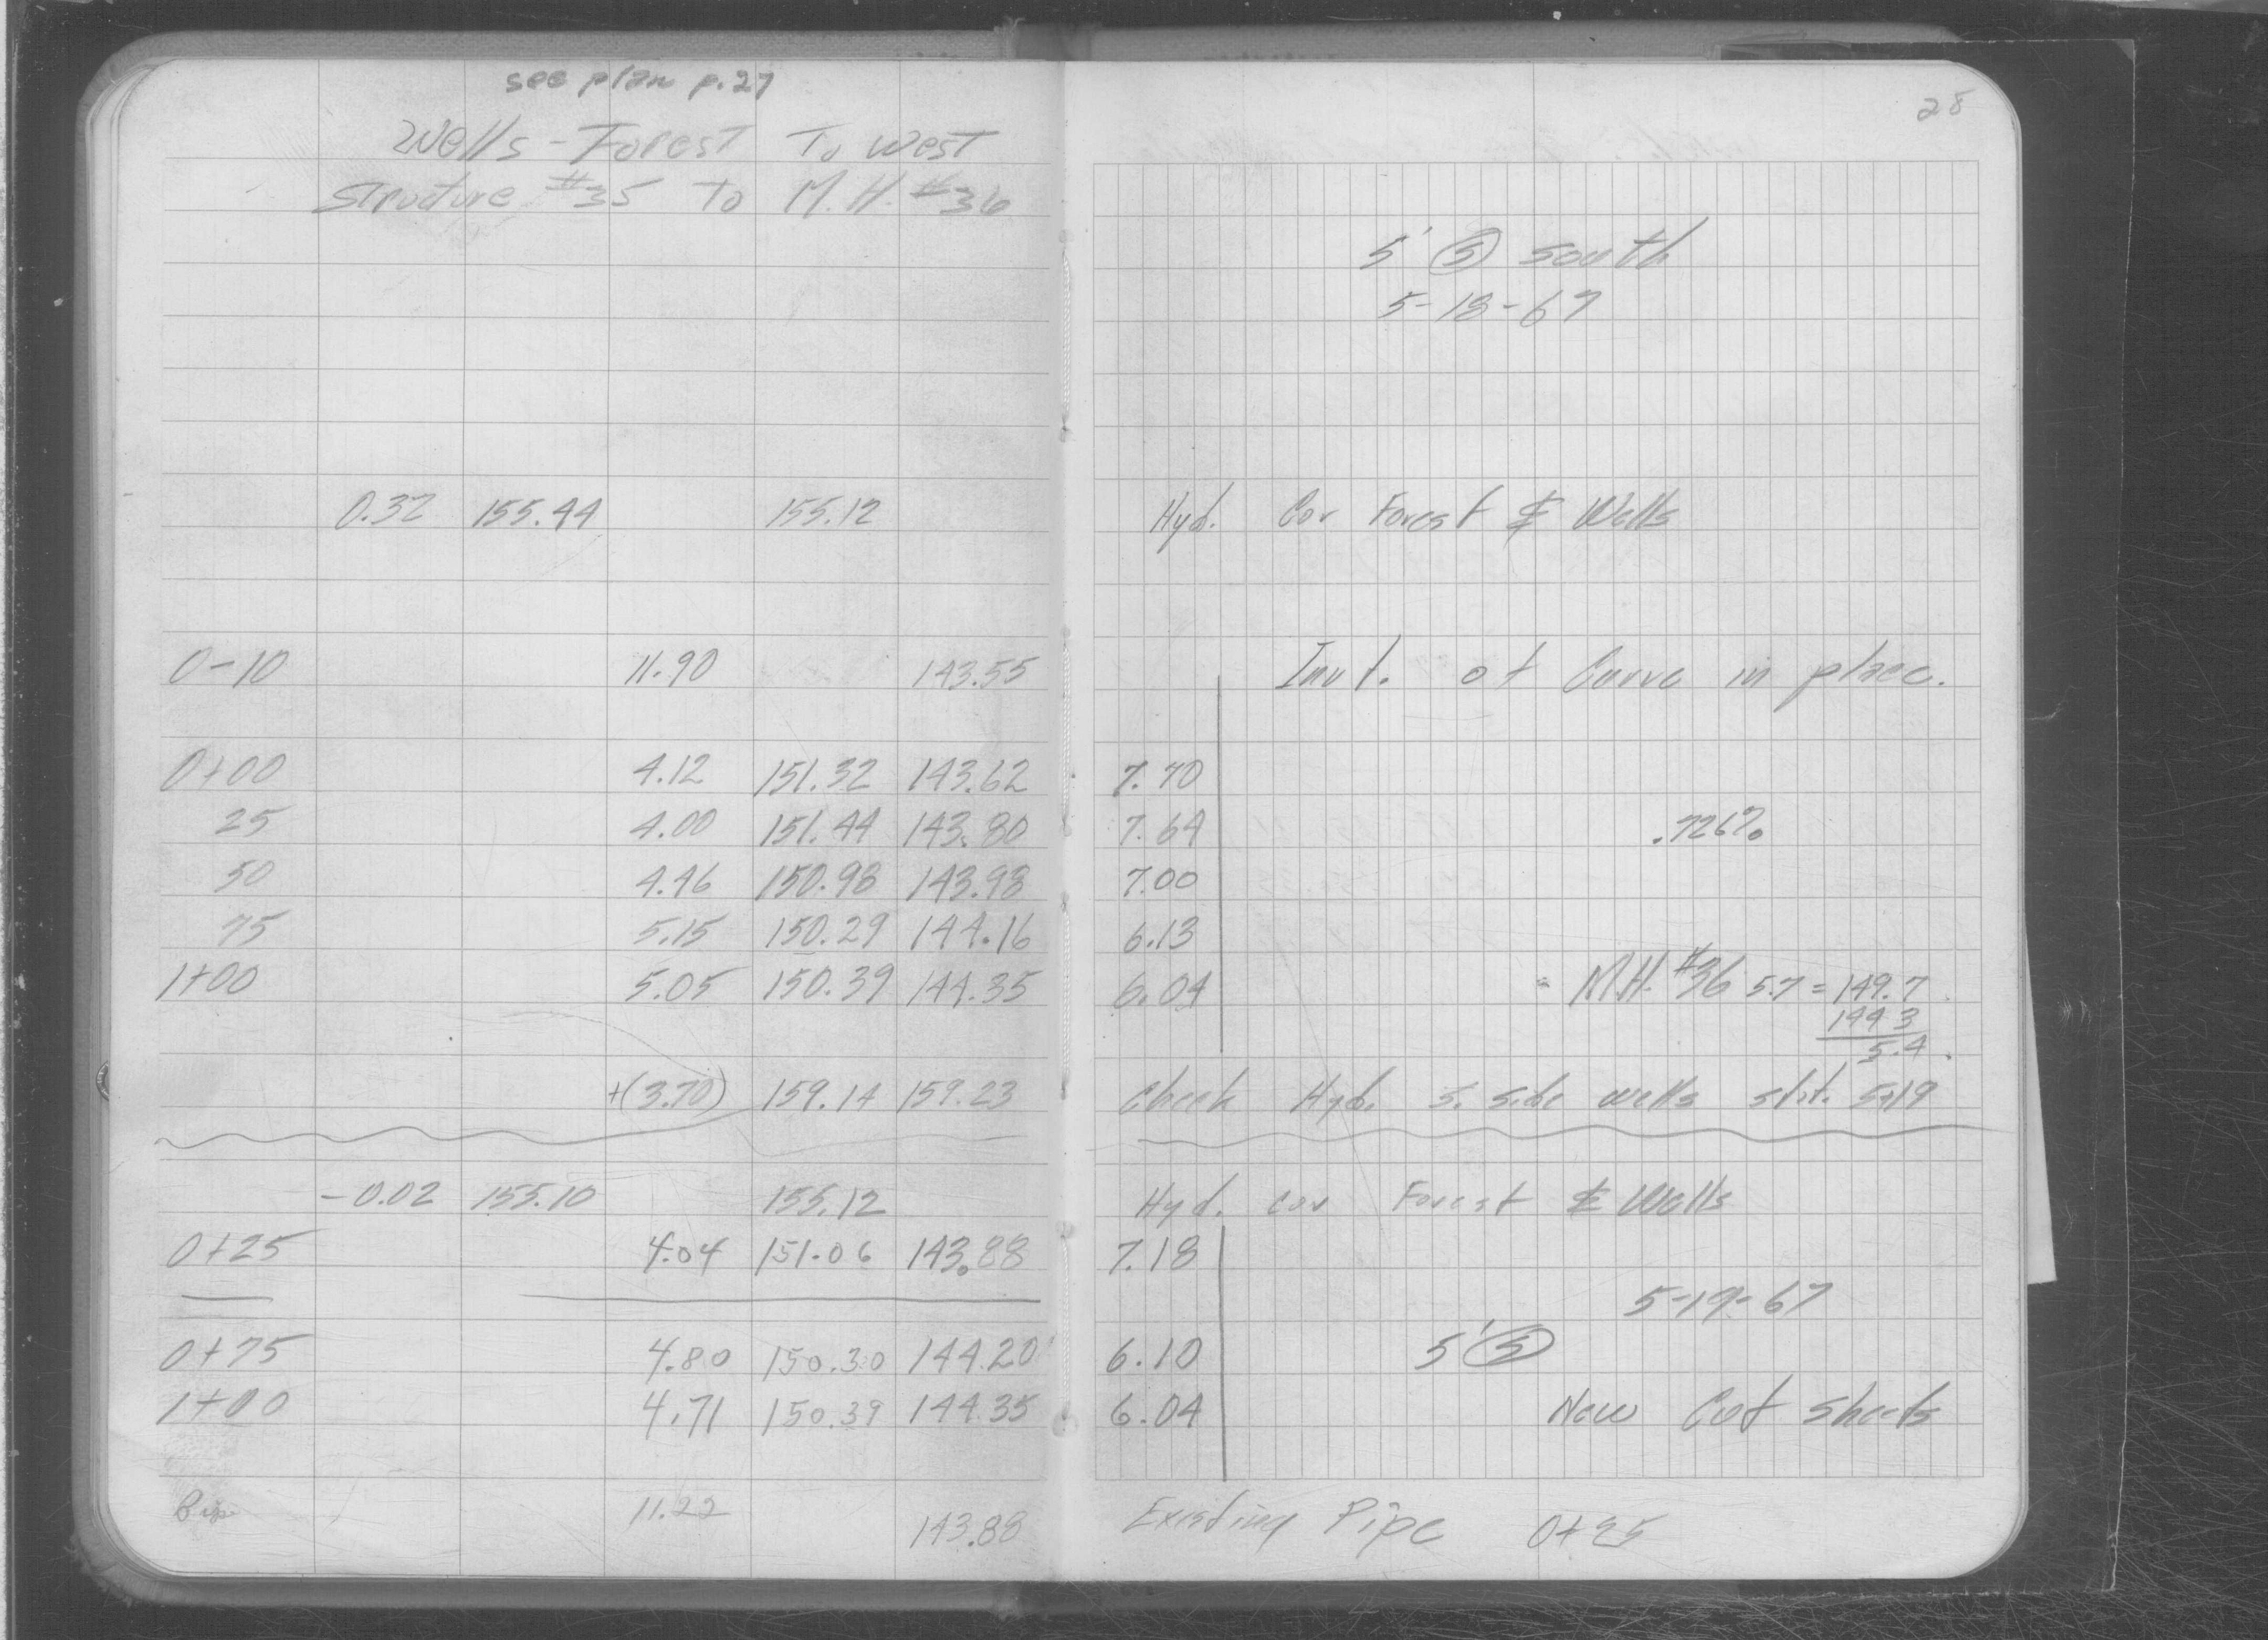 see plan p.27
Wells - Forest To West
Structure #35 To M.H. #36
28
5' Ⓢ south
5-18-67
0.32 155.44 155.12 Hyd. Cor Forest & Wells
0-10 11.90 143.55 Invt. of Curve in place.
0+00 4.12 151.32 143.62 7.70
25 4.00 151.44 143.80 7.64 .726%
50 4.46 150.98 143.98 7.00
75 5.15 150.29 144.16 6.13
1+00 5.05 150.39 144.35 6.04 = M.H. #36 5.7 = 149.7
144 3
5.4
+(3.70) 159.14 159.23 Check Hyd. S. Side Wells
-0.02 155.10 155.12 Hyd. cor Forest & Wells
0+25 4.04 151.06 143.88 7.18
5-19-67
0+75 4.80 150.30 144.20 6.10 5' Ⓢ
1+00 4.71 150.39 144.35 6.04 New Cut Sheets
11.22 143.88 Existing Pipe 0+25